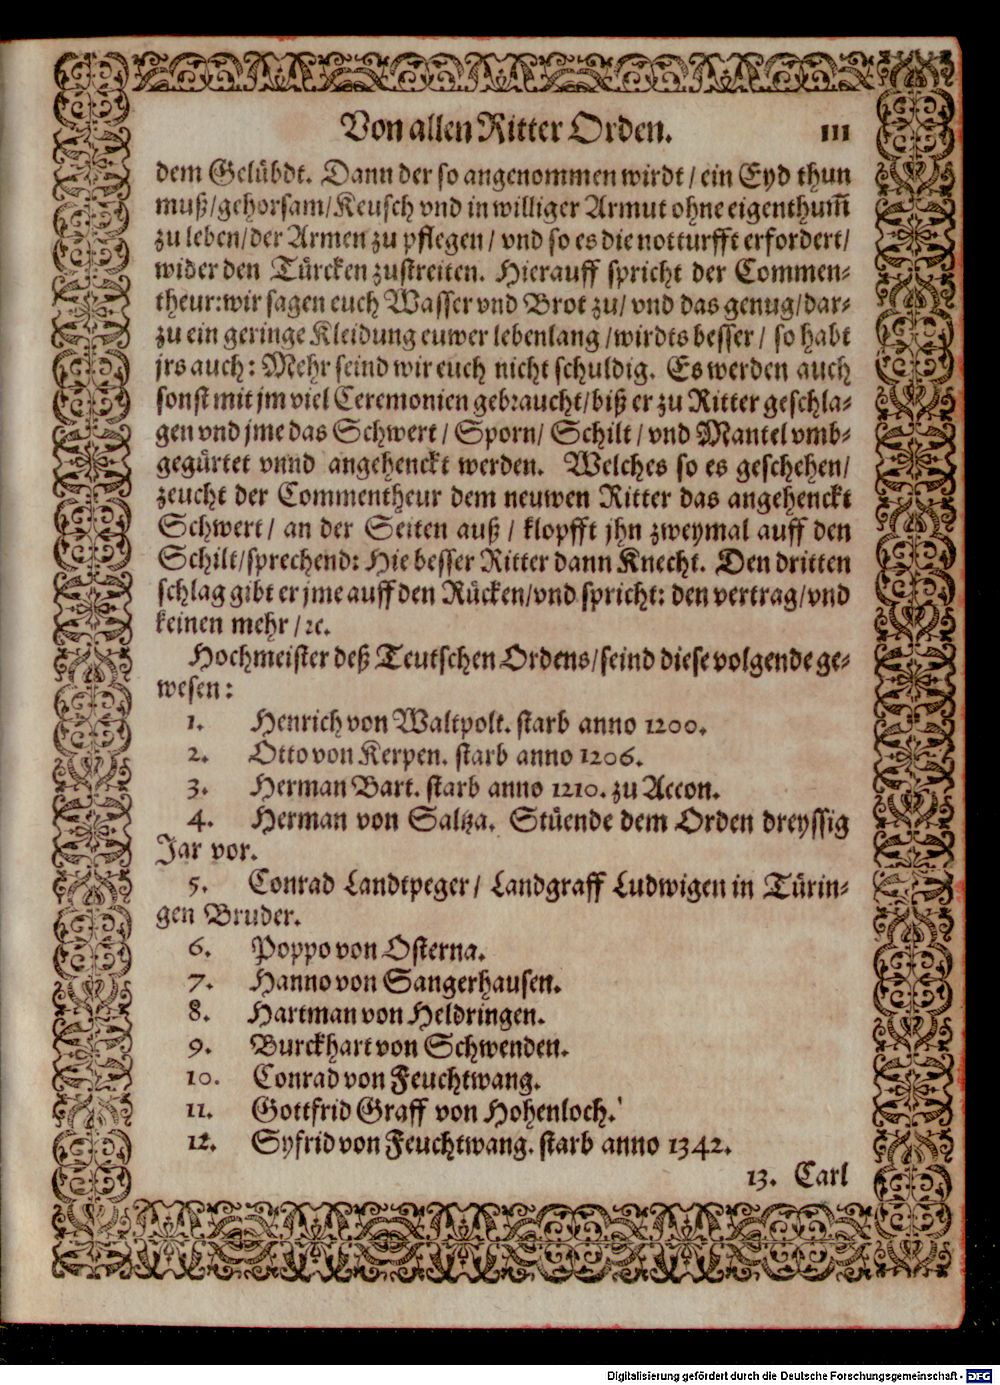 Von allen Ritter Orden. 111
dem Gelübdt. Dann der so angenommen wirdt / ein Eyd thun
muß/gehorsam/Keusch vnd in williger Armut ohne eigenthum̃
zu leben/der Armen zu pflegen / vnd so es die notturfft erfordert/
wider den Türcken zustreiten. Hierauff spricht der Commen-
theur:wir sagen euch Wasser vnd Brot zu/ vnd das genug/dar-
zu ein geringe Kleidung euwer lebenlang /wirdts besser / so habt
jrs auch: Mehr seind wir euch nicht schuldig. Es werden auch
sonst mit jm viel Ceremonien gebraucht/biß er zu Ritter geschla-
gen vnd jme das Schwert / Sporn/ Schilt / vnd Mantel vmb-
gegürtet vnnd angehenckt werden. Welches so es geschehen/
zeucht der Commentheur dem neuwen Ritter das angehenckt
Schwert / an der Seiten auß / klopfft jhn zweymal auff den
Schilt/sprechend: Hie besser Ritter dann Knecht. Den dritten
schlag gibt er jme auff den Rücken/vnd spricht: den vertrag/vnd
keinen mehr /ꝛc.
Hochmeister deß Teutschen Ordens/seind diese volgende ge-
wesen:
1. Henrich von Waltpolt. starb anno 1200.
2. Otto von Kerpen. starb anno 1206.
3. Herman Bart. starb anno 1210. zu Accon.
4. Herman von Saltza. Stüende dem Orden dreyssig
Jar vor.
5. Conrad Landtpeger / Landgraff Ludwigen in Türin-
gen Bruder.
6. Poppo von Osterna.
7. Hanno von Sangerhausen.
8. Hartman von Heldringen.
9. Burckhart von Schwenden.
10. Conrad von Feuchtwang.
11. Gottfrid Graff von Hohenloch.
12. Syfrid von Feuchtwang. starb anno 1342.
13. Carl
Digitalisierung gefördert durch die Deutsche Forschungsgemeinschaft - DFG